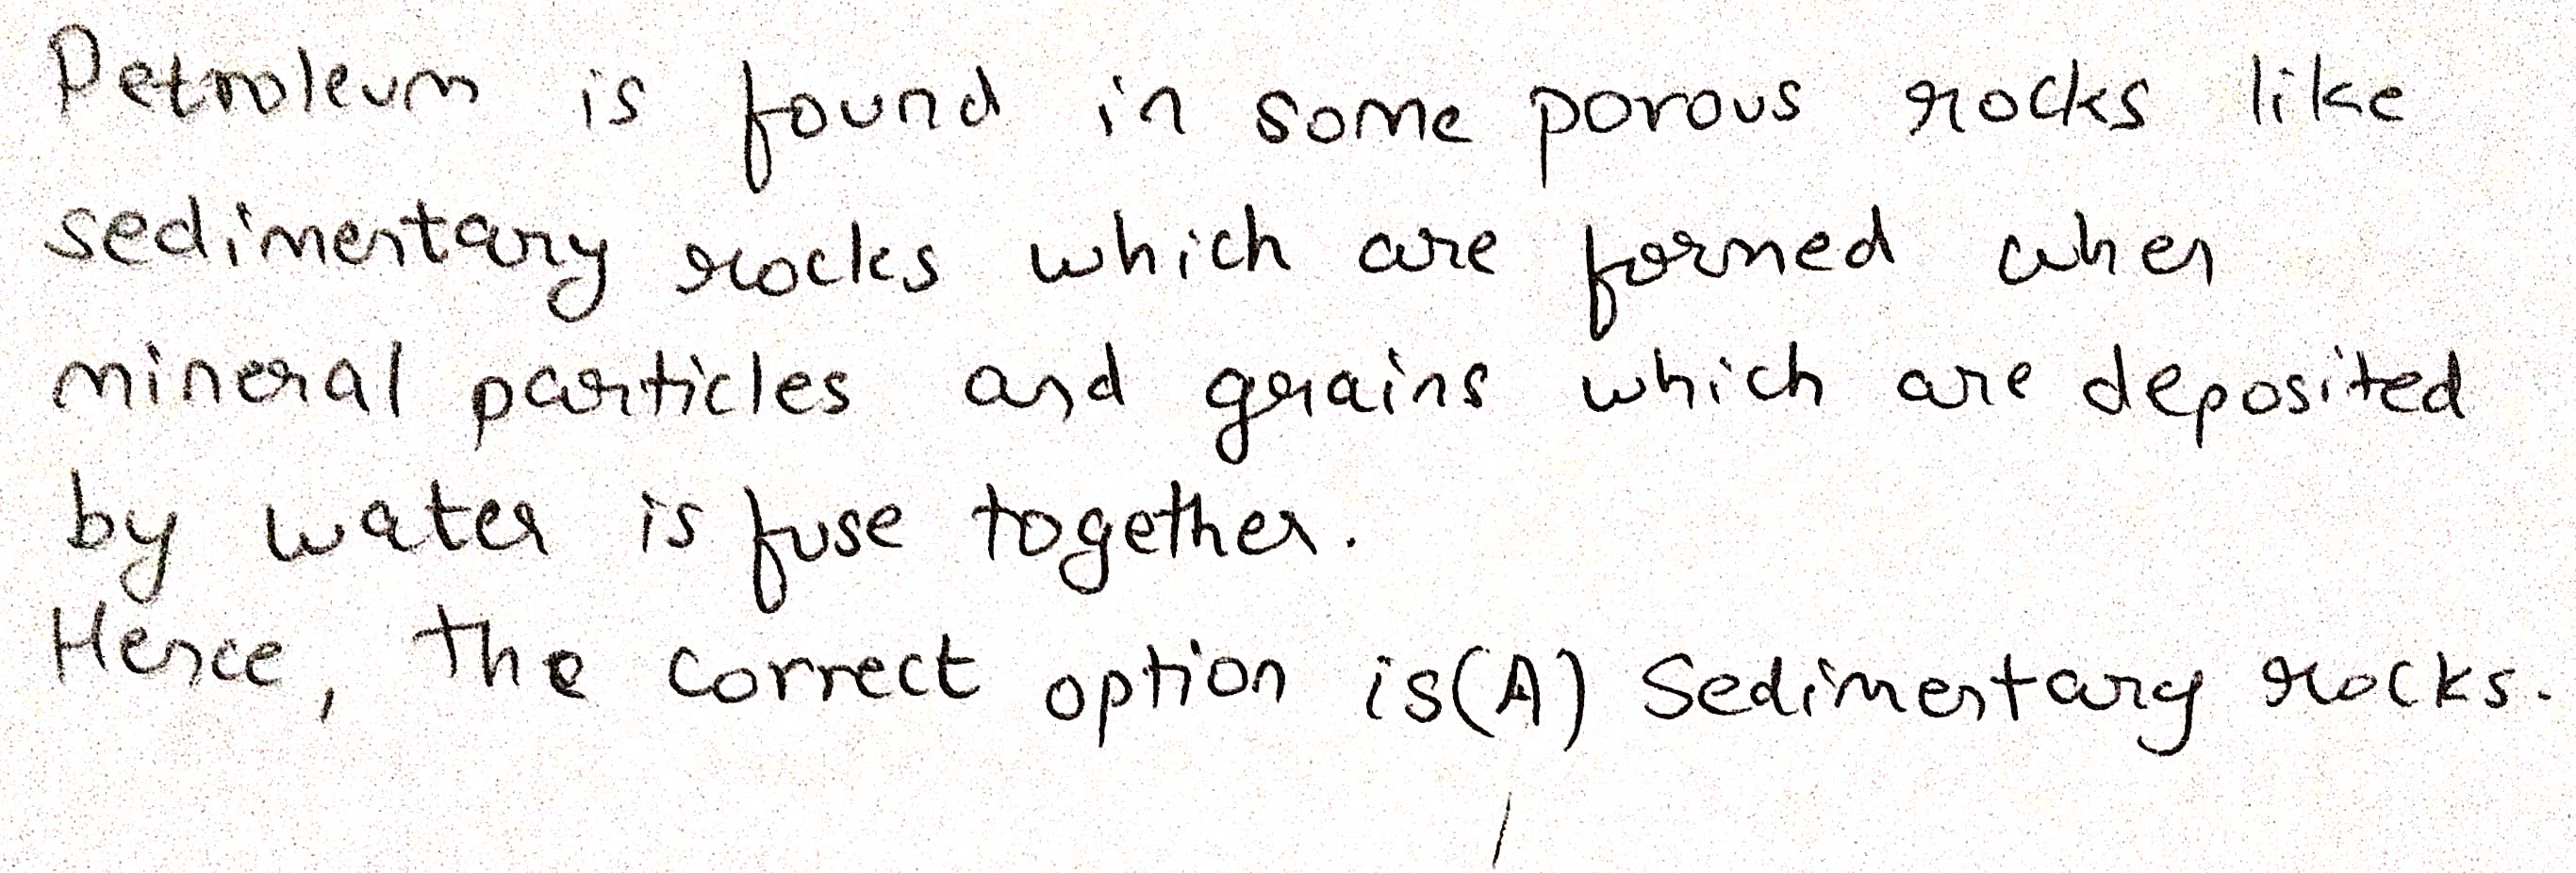 Petroleum is found in some porous rocks like
sedimentary rocks which are formed when
mineral particles and grains which are deposited
by water is fuse together.
Hence, the correct option is (A) Sedimentary rocks.